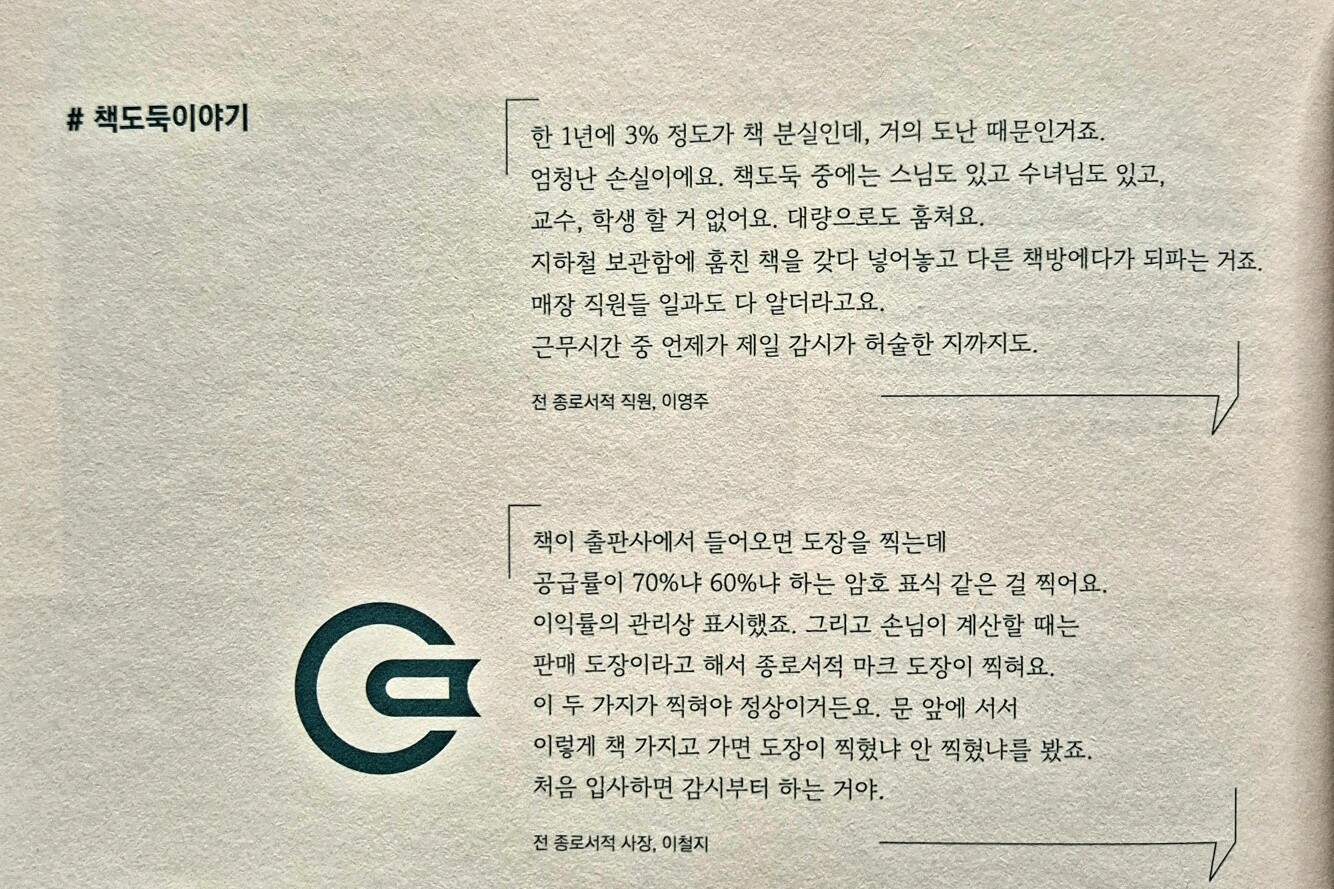 # 책도둑이야기
한 1년에 3% 정도가 책 분실인데, 거의 도난 때문인거죠.
엄청난 손실이에요. 책도둑 중에는 스님도 있고 수녀님도 있고,
교수, 학생 할 거 없어요. 대량으로도 훔쳐요.
지하철 보관함에 훔친 책을 갖다 넣어놓고 다른 책방에다가 되파는 거죠.
매장 직원들 일과도 다 알더라고요.
근무시간 중 언제가 제일 감시가 허술한 지까지도.
전 종로서적 직원, 이영주
책이 출판사에서 들어오면 도장을 찍는데
공급률이 70%냐 60%냐 하는 암호 표식 같은 걸 찍어요.
이익률의 관리상 표시했죠. 그리고 손님이 계산할 때는
판매 도장이라고 해서 종로서적 마크 도장이 찍혀요.
이 두 가지가 찍혀야 정상이거든요. 문 앞에 서서
이렇게 책 가지고 가면 도장이 찍혔냐 안 찍혔냐를 봤죠.
처음 입사하면 감시부터 하는 거야.
전 종로서적 사장, 이철지